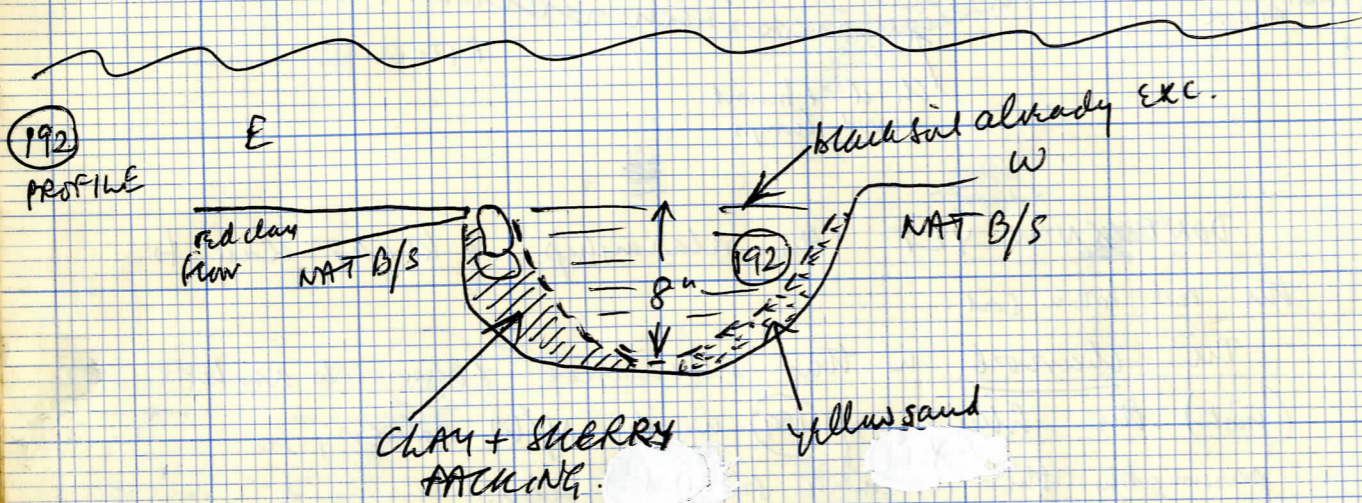 192
PROFILE
E
black soil already exc.
W
red clay
floor
NAT B/S
8"
192
NAT B/S
CLAY + SKERRY
PACKING.
yellow sand